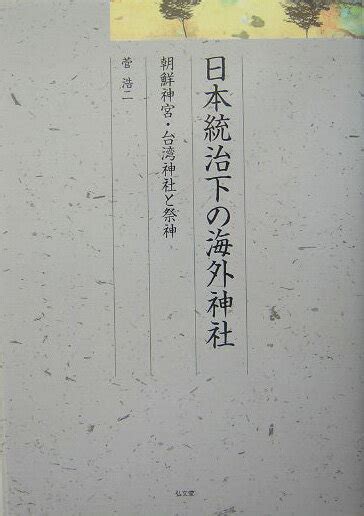 日本統治下の海外神社
朝鮮神宮・台湾神社と祭神
菅 浩二
弘文堂